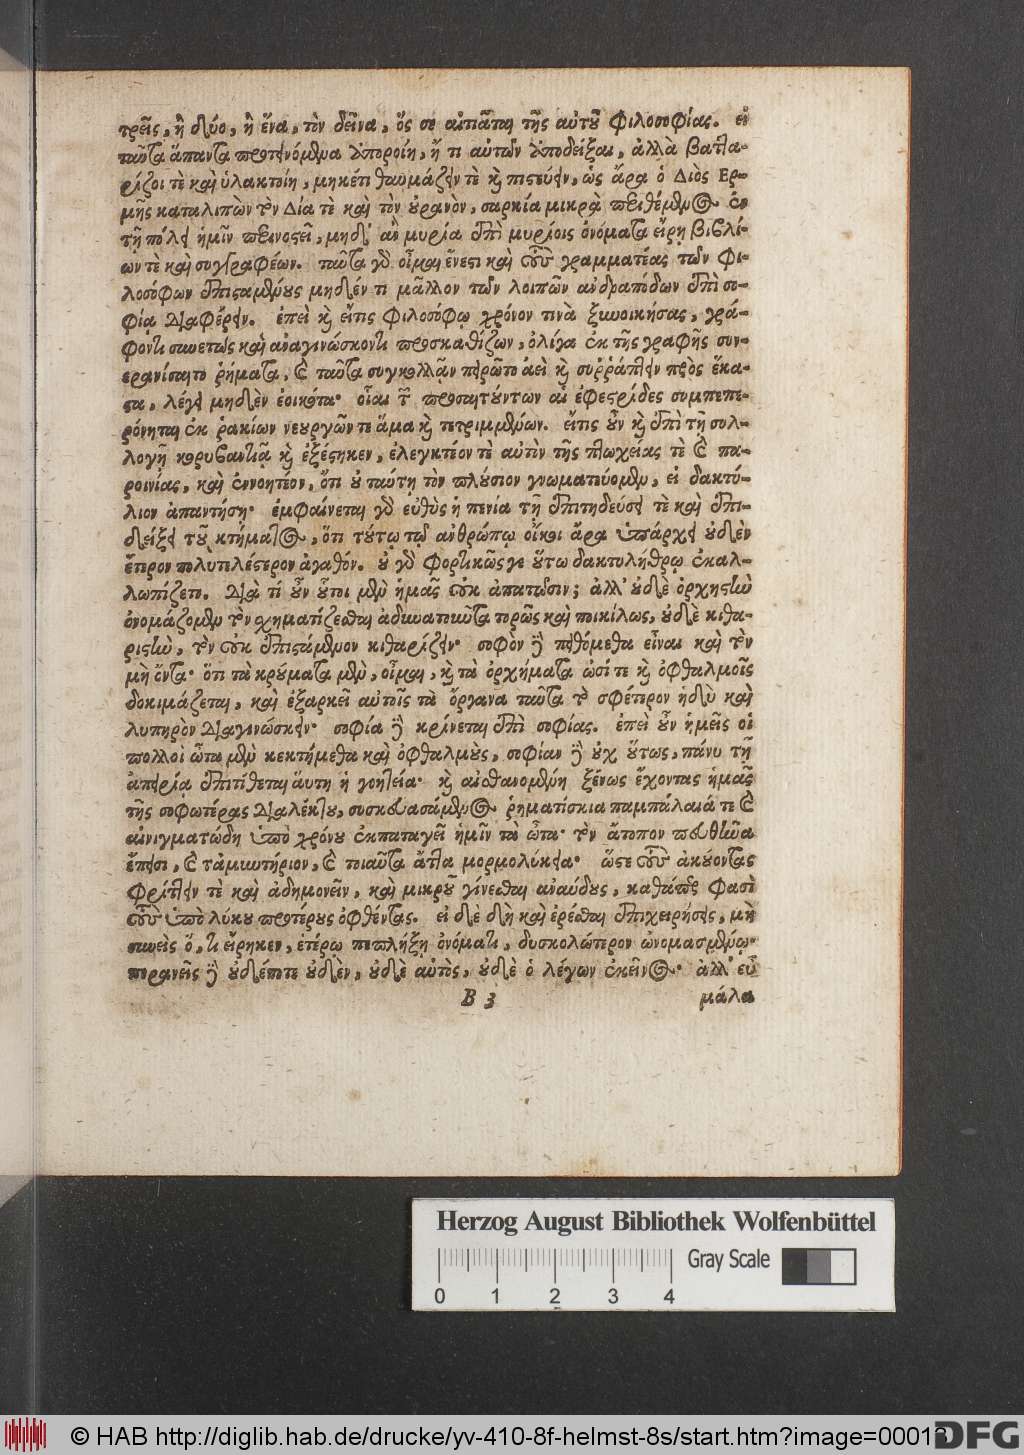 τρεῖς, ἢ δύο, ἢ ἕνα, τὸν δεῖνα, ὅς σε αἰτιᾶται τῆς αὐτοῦ φιλοσοφίας. εἰ
ταῦτα ἅπαντα προτεινόμενα ἀποροίη, ἤ τι αὐτῶν ἀποδείξαι, ἀλλὰ βατταρίζοι
τὲ καὶ ὑλακτοίη, μηκέτι θαυμάζειν τὲ καὶ πιστεύειν, ὡς ἄρα ὁ Διὸς Ερμῆς
καταλιπὼν τὸν Δία τὲ καὶ τὸν οὐρανὸν, σαρκία μικρὰ περιθέμενος ἐν
τῇ πόλει ἡμῖν περινοστεῖ, μηδ' ἂν μυρία ἐπὶ μυρίοις ὀνόματα εἴρῃ βιβλίων
τὲ καὶ συγγραφέων. ταῦτα γὰρ οἶμαι ἔνεστι καὶ τοὺς γραμματέας τῶν φιλοσόφων
ἐπισταμένους μηδέν τι μᾶλλον τῶν λοιπῶν ἀνδραπόδων ἐπὶ σοφίᾳ
διαφέρειν. ἐπεὶ καὶ εἴτις φιλοσόφῳ χρόνον τινὰ ξυνοικήσας, γράφοντι
συνετῶς καὶ ἀναγινώσκοντι προσκαθίζων, ὀλίγα ἐκ τῆς γραφῆς συνερανίσαιτο
ῥήματα, καὶ ταῦτα συγκολλᾶν πειρῷτο ἀεὶ καὶ συῤῥάπτειν πρὸς ἕκαστα,
λέγει μηδὲν ἐοικότα· οἷαι τῶν προσαιτούντων αἱ ἐφεστρίδες συμπεπερόνηται
ἐκ ῥακίων νεουργῶν τε ἅμα καὶ τετριμμένων. εἴτις οὖν καὶ ἐπὶ τῇ συλλογῇ
κορυβαντιᾷ καὶ ἐξέστηκεν, ἐλεγκτέον τὲ αὐτὸν τῆς πτωχείας τὲ καὶ παροινίας,
καὶ ἐννοητέον, ὅτι οὐ ταύτῃ τὸν πλούσιον γνωματεύομεν, εἰ δακτύλιον
ἀπαντήσῃ· ἐμφαίνεται γὰρ εὐθὺς ἡ πενία τῇ ἐπιτηδεύσει τὲ καὶ ἐπιδείξει
τοῦ κτήματος, ὅτι τούτῳ τῷ ἀνθρώπῳ οἴκοι ἄρα ὑπάρχει οὐδὲν
ἕτερον πολυτελέστερον ἀγαθόν. οὐ γὰρ φορτικῶς γε οὕτω δακτυλήθρῳ ἐκαλλωπίζετο.
διὰ τί οὖν οὗτοι μὲν ἡμᾶς οὐκ ἀπατῶσιν; ἀλλ' οὐδὲ ὀρχηστὴν
ὀνομάζομεν τὸν σχηματίζεσθαι ἀδυνατοῦντα πρῶς καὶ ποικίλως, οὐδὲ κιθαριστὴν,
τὸν οὐκ ἐπιστάμενον κιθαρίζειν· σοφὸν δὲ πειθόμεθα εἶναι καὶ τὸν
μὴ ὄντα· ὅτι τὰ κρύματα μὲν, οἶμαι, καὶ τὰ ὀρχήματα ὠσί τε καὶ ὀφθαλμοῖς
δοκιμάζεται, καὶ ἐξαρκεῖ αὐτοῖς τὰ ὄργανα ταῦτα τὸ σφέτερον ἡδὺ καὶ
λυπηρὸν διαγινώσκειν· σοφία δὲ κρίνεται ἐπὶ σοφίας. ἐπεὶ οὖν ἡμεῖς οἱ
πολλοὶ ὦτα μὲν κεκτήμεθα καὶ ὀφθαλμοὺς, σοφίαν δὲ οὐχ οὕτως, πάνυ τῇ
ἀπειρίᾳ ἐπιτίθεται αὕτη ἡ γοητεία· καὶ αἰσθανομένη ξένως ἔχοντας ἡμᾶς
τῆς σοφωτέρας διαλέκτου, συσκευασάμενος ῥηματίσκια παμπάλαιά τε καὶ
αἰνιγματώδη ὑπὸ χρόνου ἐκπαταγεῖ ἡμῖν τὰ ὦτα· τὸν ἄτοπον πευθῆνα
ἔπεισι, καὶ τἀμιευτήριον, καὶ τοιαῦτα ἄττα μορμολύκεια· ὥστε τοὺς ἀκούοντας
φρίττειν τὲ καὶ ἀδημονεῖν, καὶ μικροῦ γίνεσθαι ἀναύδους, καθάπερ φασὶ
τοὺς ὑπὸ λύκου προτέρους ὀφθέντας. εἰ δὲ δὴ καὶ ἐρέσθαι ἐπιχειρήσεις, μὴ
συνεὶς ὅ, τι εἴρηκεν, ἑτέρῳ πεπλήξῃ ὀνόματι, δυσκολώτερον ὠνομασμένῳ·
περανεῖς δὲ οὐδέποτε οὐδὲν, οὐδὲ αὐτὸς, οὐδὲ ὁ λέγων ἐκεῖνος· ἀλλ' εὖ
B 3 μάλα
Herzog August Bibliothek Wolfenbüttel
Gray Scale
0 1 2 3 4
© HAB http://diglib.hab.de/drucke/yv-410-8f-helmst-8s/start.htm?image=00013
DFG